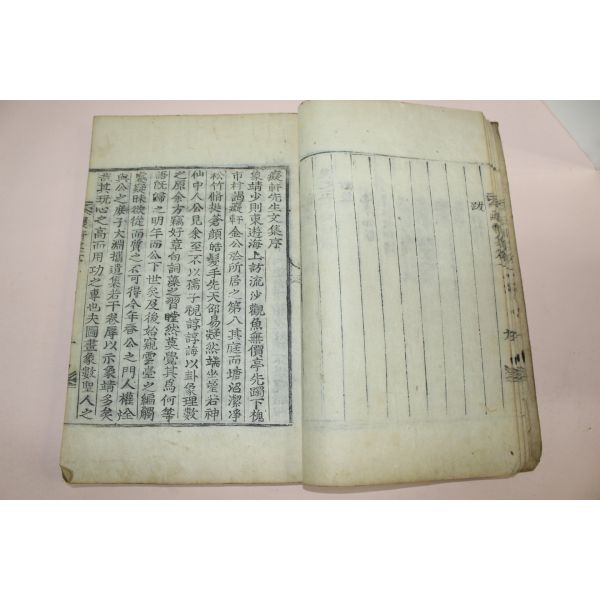 跋
軒先生文集序
象靖少則東遊海上訪流沙觀魚無價亭先下槐
市村謁軒金公於所居之第入其庭而塘沼潔淨
松竹脩挺蒼顔皓髮手先天邵易凝然端坐望若神
仙中人公見余至不以孺子視諄諄誨以卦象理數
之原余方竊好章句詞藻之習瞠然莫覺其爲何等
語旣歸之明年而公下世矣及後始窺雲臺之編觸
處疑昧欲從而質之不可得今年春公之門人權
與公之庶子大淵携遺集若干卷辱以示象靖多矣
哉其玩心之高而用功之專也夫圖畫象數聖人之